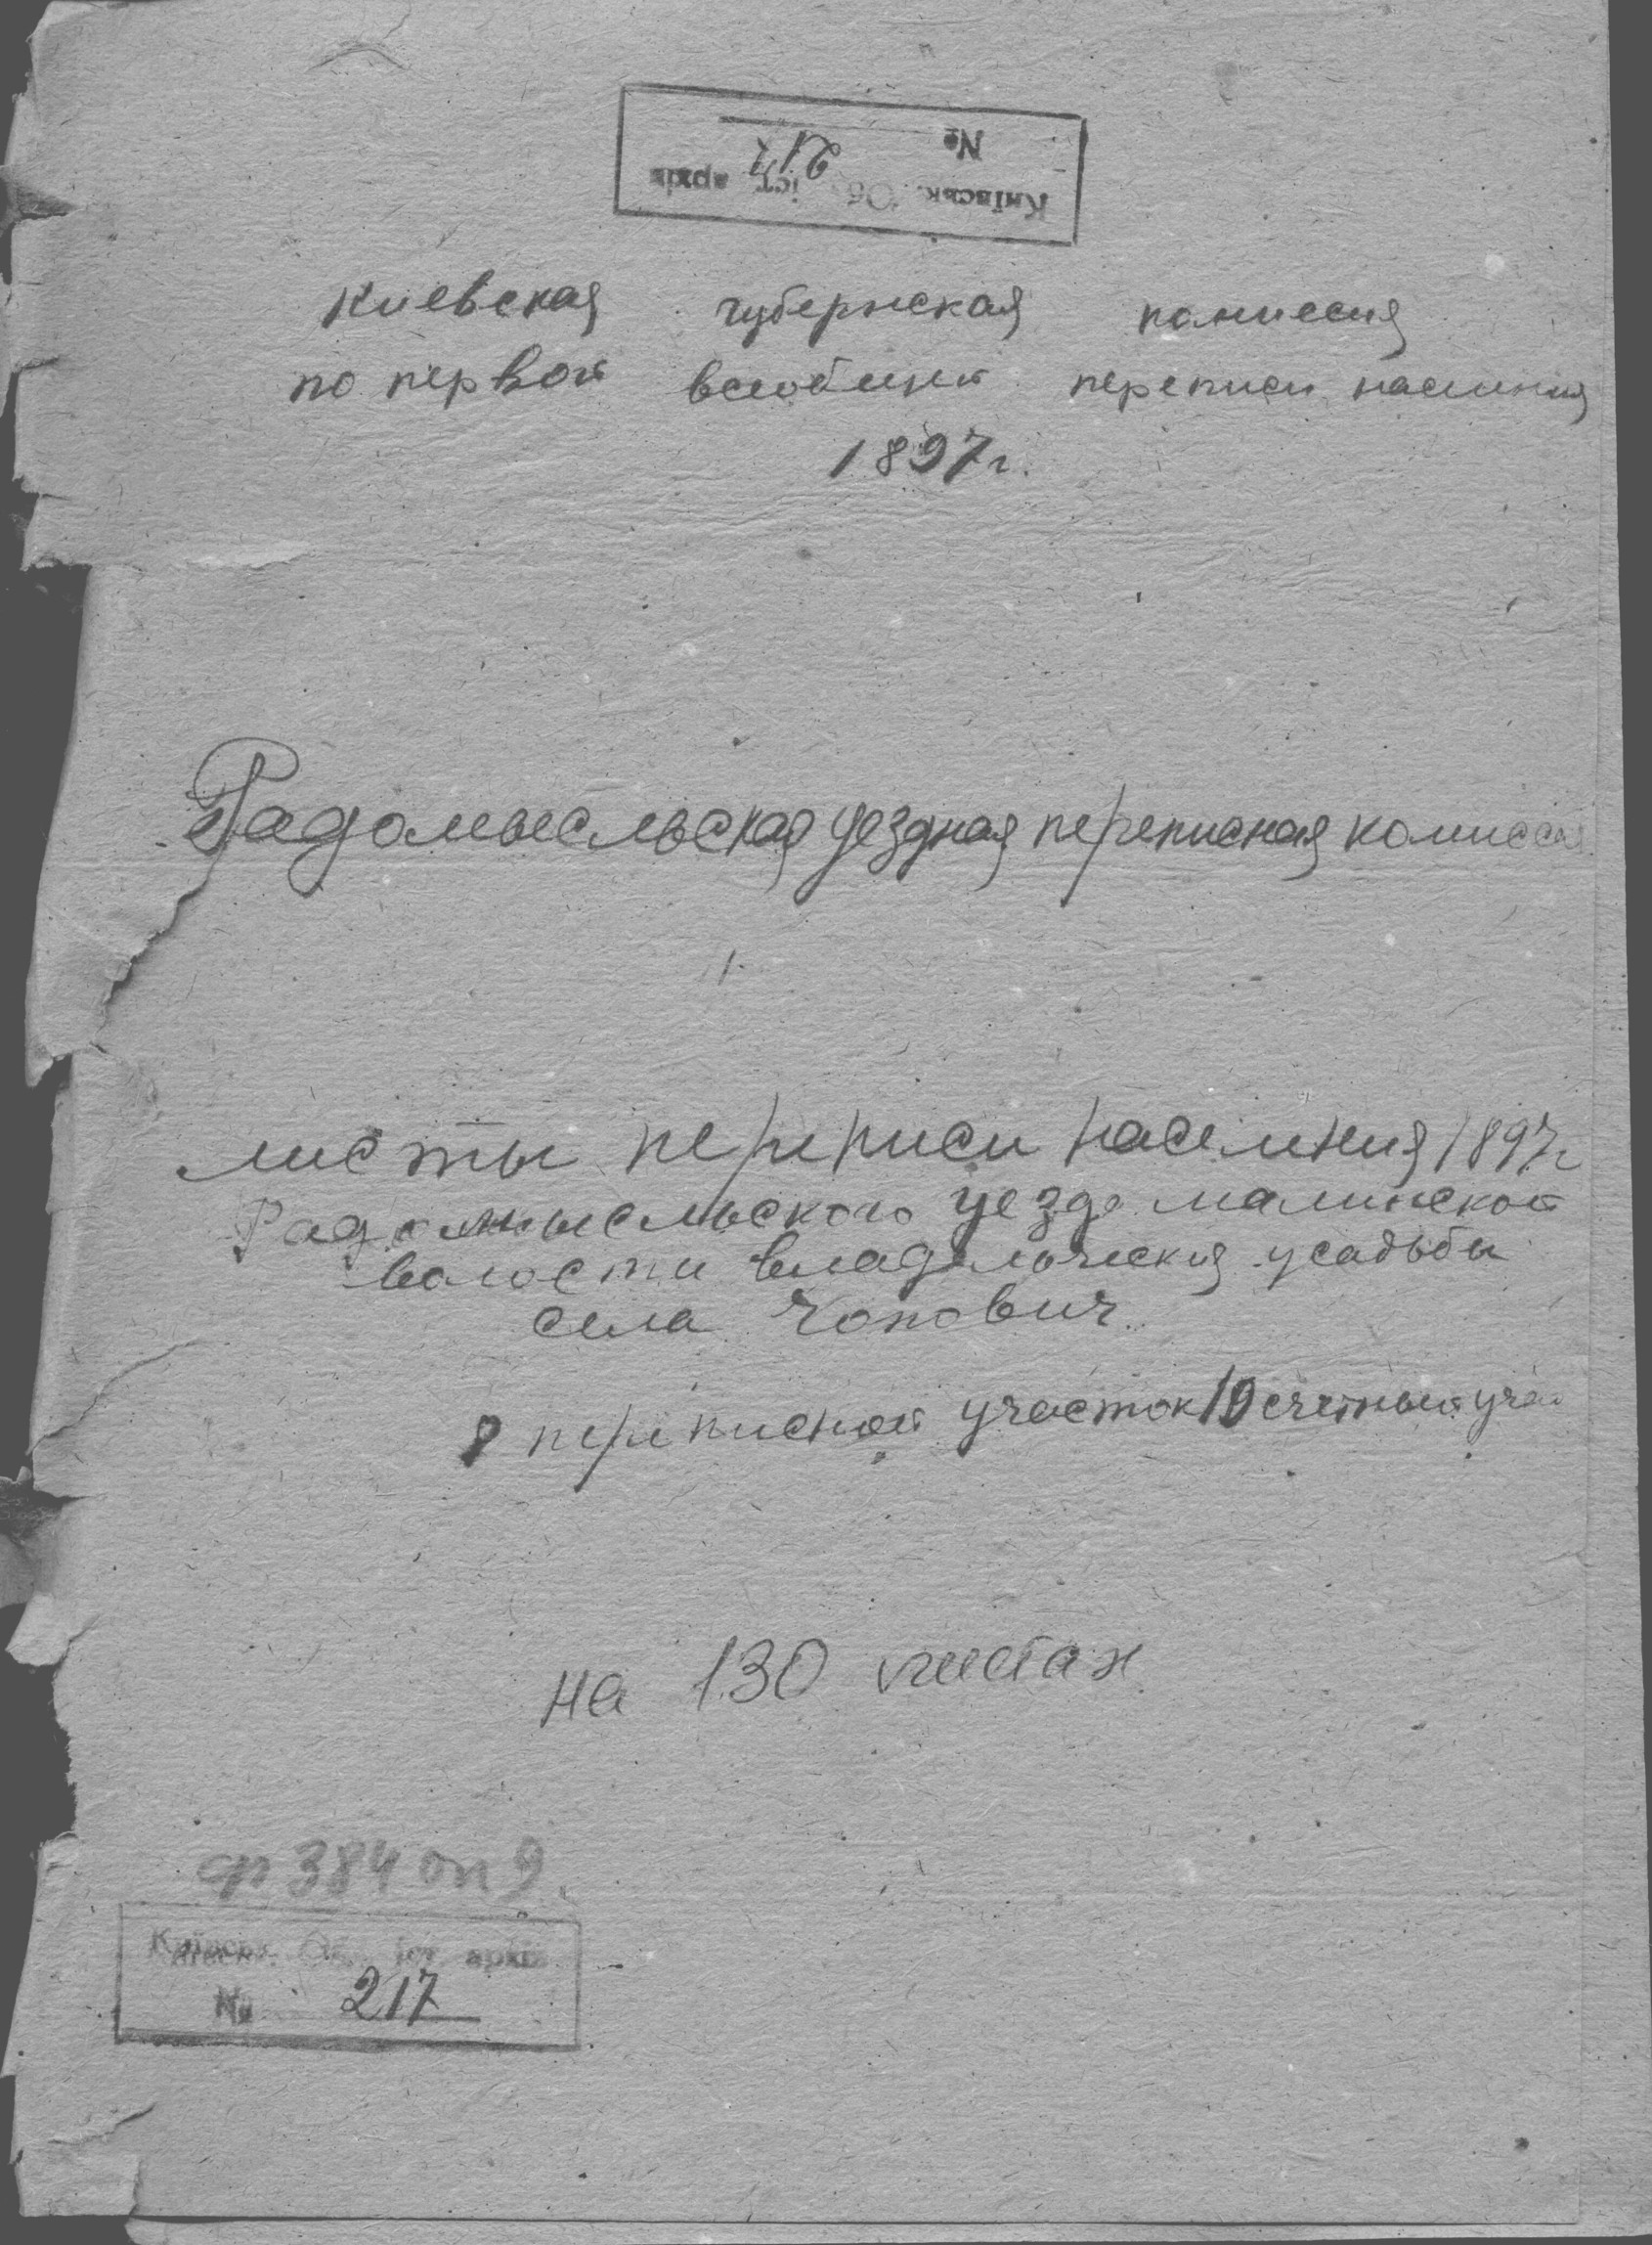 Київськ. Об. іст. архів
№ 217
Киевская губернская комиссия
по первой всеобщей переписи населения
1897 г.
Радомысльская уездная переписная комисси
листы переписи населения 1897 г
Радомысльского уезда малинской
волости владельческия усадьбы
села Чопович
8 переписной участок 10 счетный уча
на 130 листах
ф 384 оп 9
Київськ. Об. іст. архів
№ 217